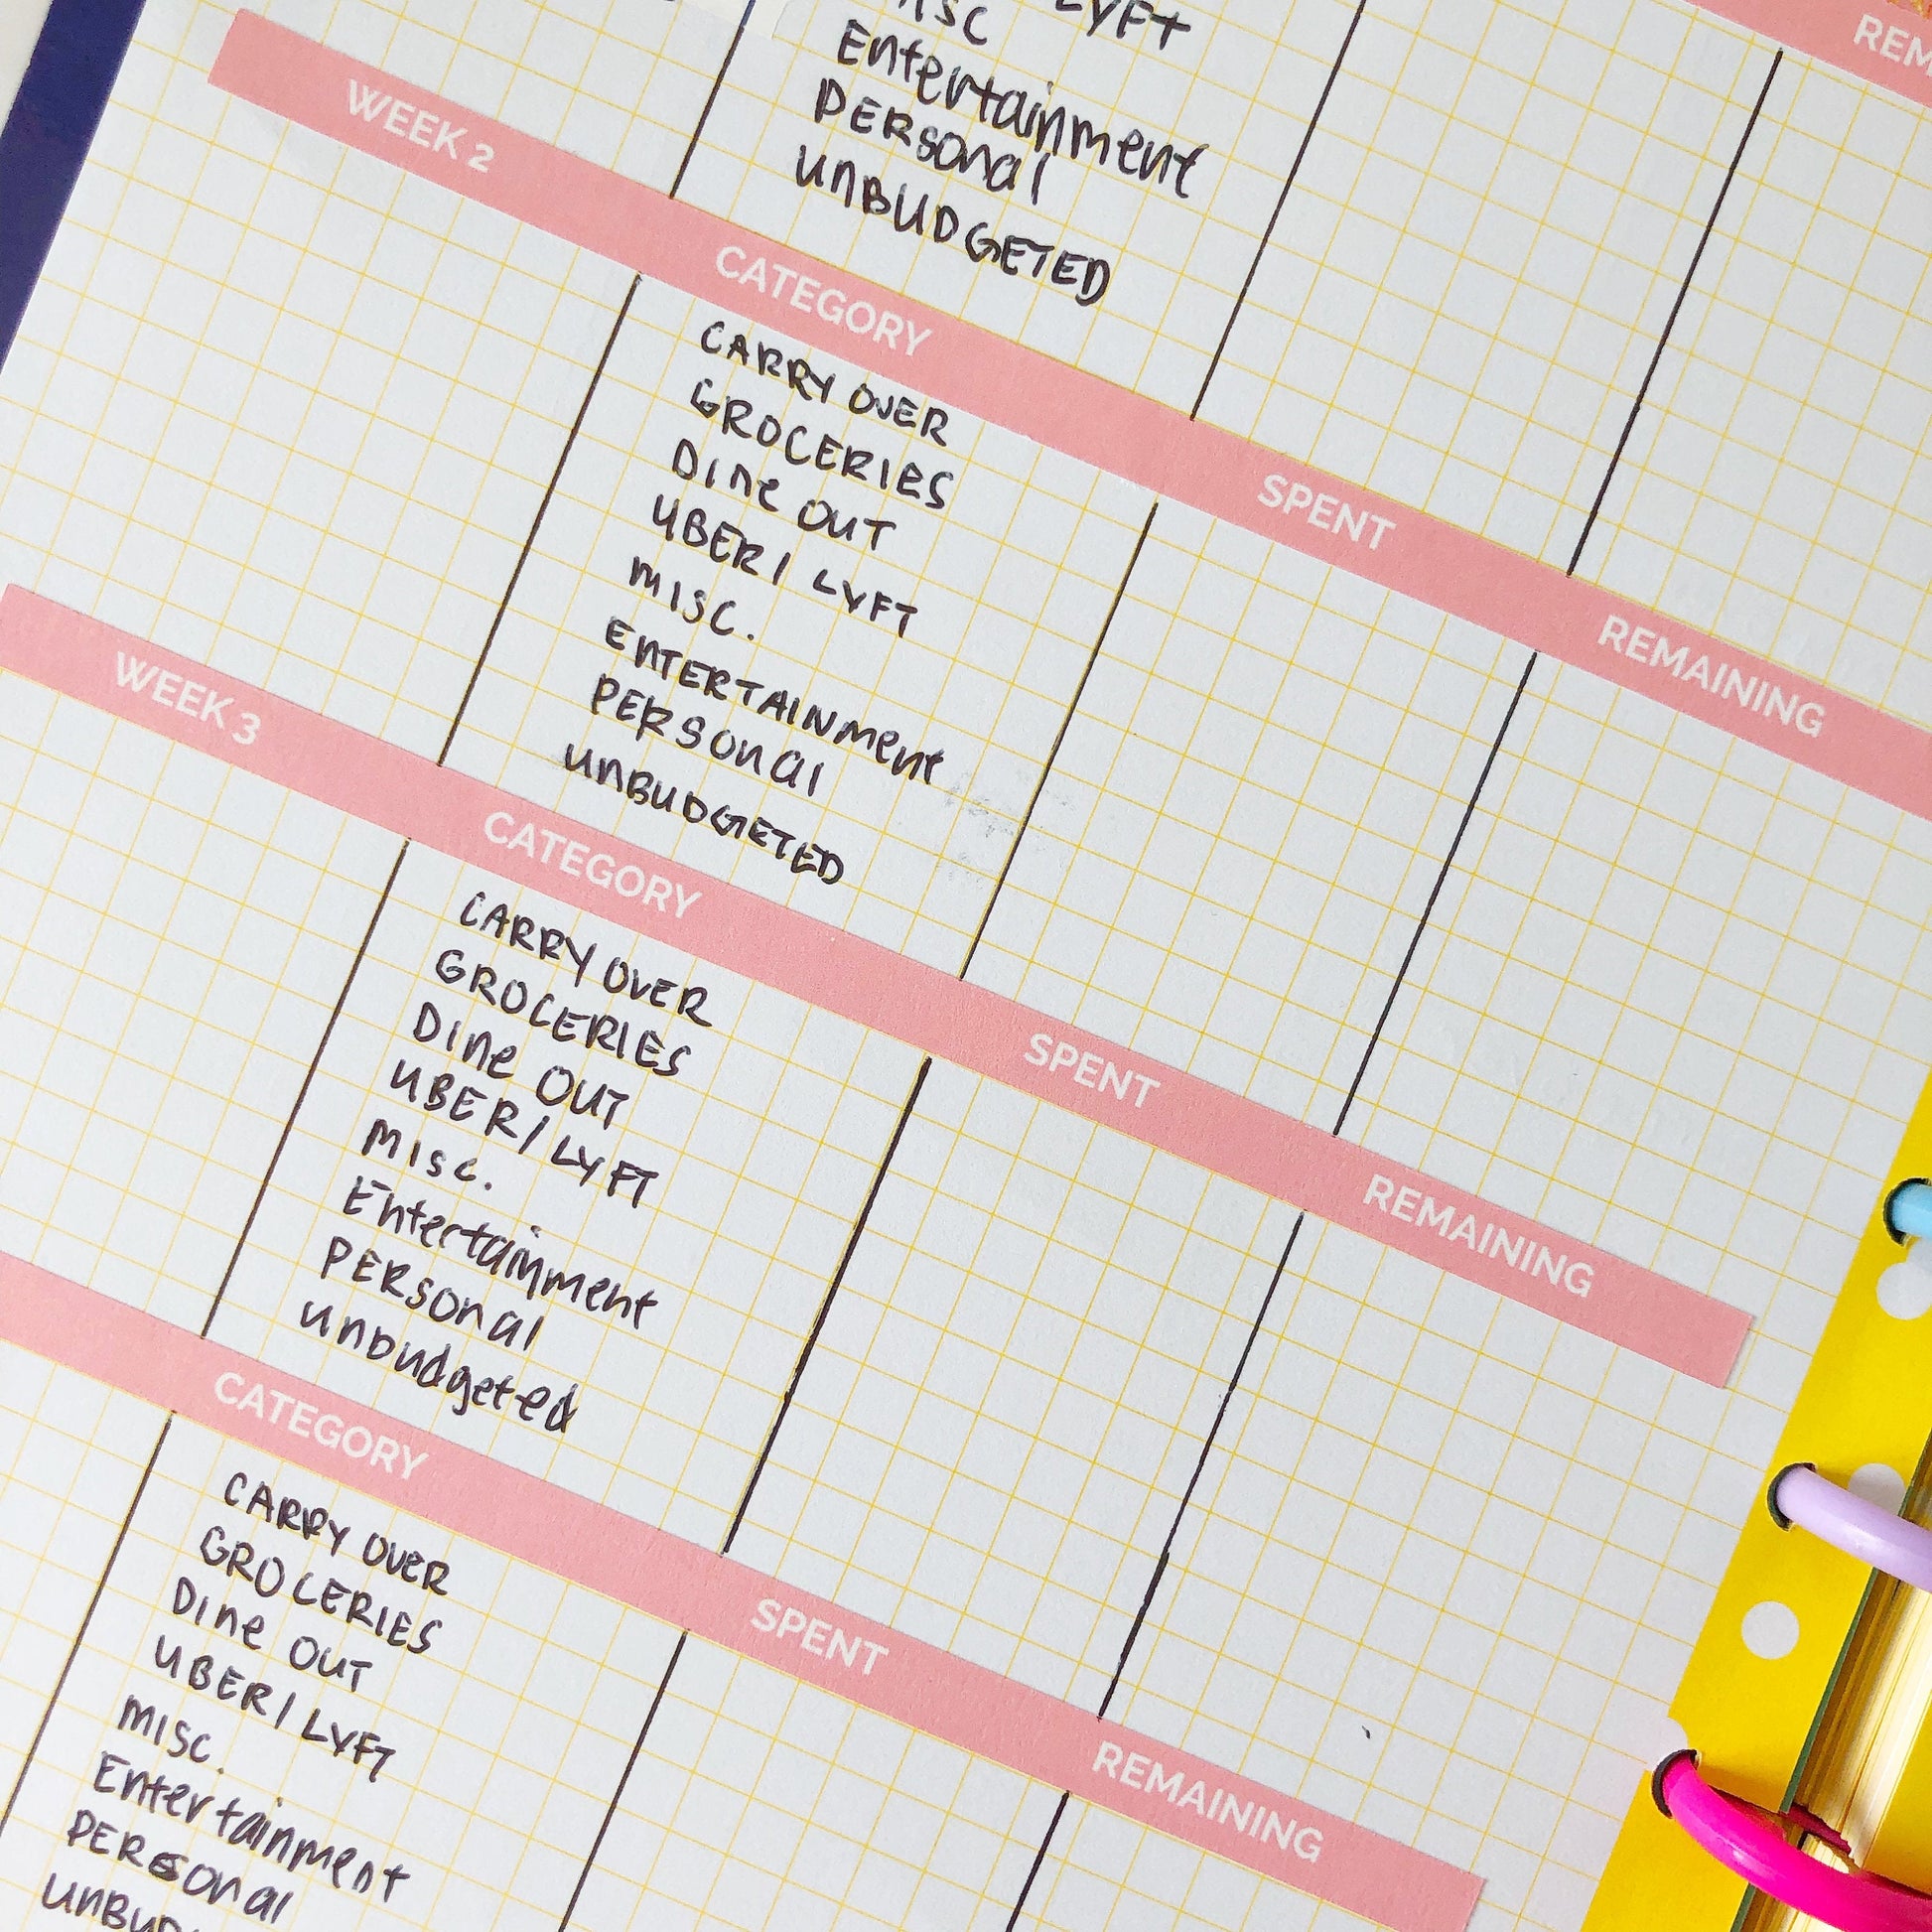 REM
LYFT
Entertainment
PERSONAl
UNBUDGETED
WEEK 2 CATEGORY SPENT REMAINING
CARRY OVER
GROCERIES
Dine OUT
UBER/ LYFT
MISC.
ENTERTAINMENT
PERSONAl
UNBUDGETED
WEEK 3 CATEGORY SPENT REMAINING
CARRY OVER
GROCERIES
Dine OUT
UBER/LYFT
MISC.
Entertainment
PERSONAl
unbudgeted
CATEGORY SPENT REMAINING
CARRY OVER
GROCERIES
Dine OUT
UBER/LYFT
MISC.
Entertainment
PERSONAl